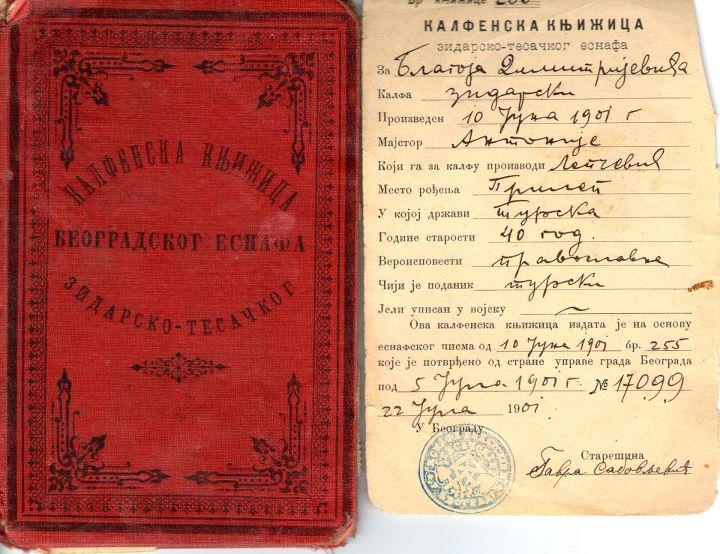 КАЛФЕНСКА КЊИЖИЦА
БЕОГРАДСКОГ ЕСНАФА
ЗИДАРСКО-ТЕСАЧКОГ
Бр књижице 260
КАЛФЕНСКА КЊИЖИЦА
зидарско-тесачког еснафа
За Благоја Димитријевића
Калфа зидарски
Произведен 10 Јуна 1901 г
Мајстор Антоније
Који га за калфу производи Летчевић
Место рођења Прилеп
У којој држави турска
Године старости 40 год.
Вероисповести православне
Чији је поданик турски
Јели уписан у војску
Ова калфенска књижица издата је на основу
еснафског писма од 10 Јуна 1901 бр. 255
које је потврђено од стране управе града Београда
под 5 Јула 1901 г. № 17099
22 Јула 1901
У Београду
Старешина
Гавра